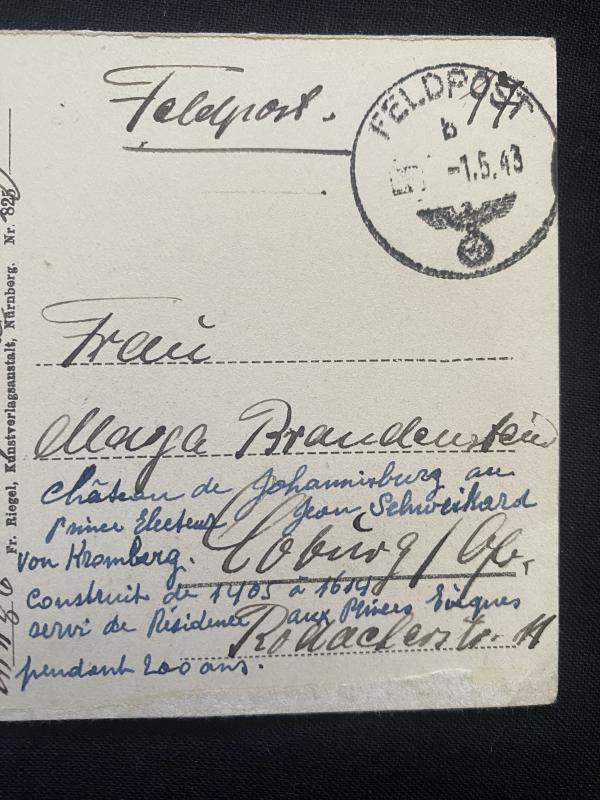 Feldpost.
FELDPOST
b
-1.5.43
Fr. Riegel, Kunstverlagsanstalt, Nürnberg. Nr. 825
Frau
Maga Brandenstein
Château de Johannisburg au
Prince Electeur Jean Schweikard
von Kromberg.
Coburg /
Construit de 1405 à 1614
servi de Résidence aux Princes Evêques
Rodacherstr. 11
pendant 200 ans.